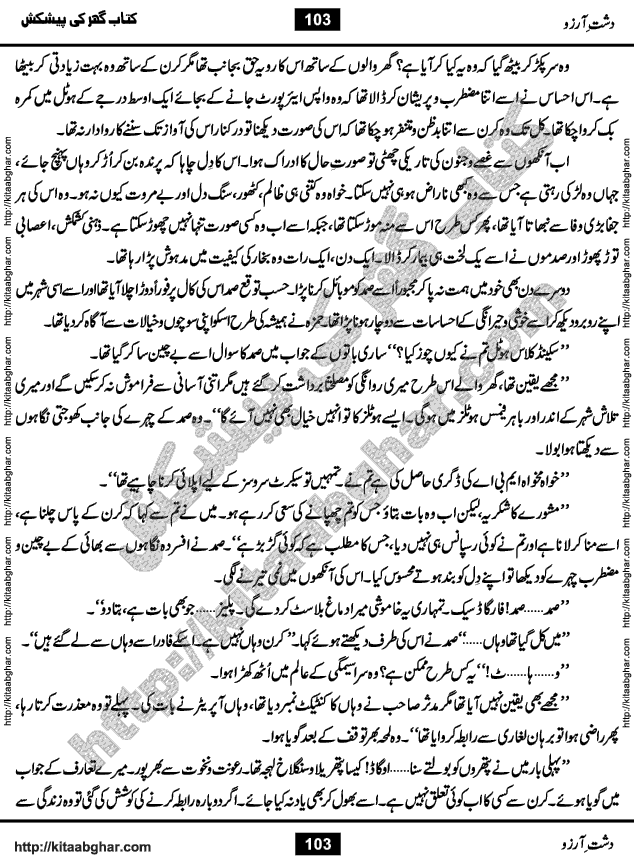 کتاب گھر کی پیشکش 103 دشتِ آرزو
وہ سر پکڑ کر بیٹھ گیا کہ وہ یہ کیا کر آیا ہے؟ گھر والوں کے ساتھ اس کا رویہ حق بجانب تھا مگر کرن کے ساتھ وہ بہت زیادتی کر بیٹھا
ہے۔ اس احساس نے اسے اتنا مضطرب و پریشان کر ڈالا تھا کہ وہ واپس ایئر پورٹ جانے کے بجائے ایک اوسط درجے کے ہوٹل میں کمرہ
بک کروا چکا تھا۔ کل تک وہ کرن سے اتنا بدظن و متنفر ہو چکا تھا کہ اس کی صورت دیکھنا تو درکنار اس کی آواز تک سننے کا روادار نہ تھا۔
اب آنکھوں سے غصے و جنون کی تاریکی چھٹی تو صورتِ حال کا ادراک ہوا۔ اس کا دِل چاہا کہ پرندہ بن کر اُڑ کر وہاں پہنچ جائے،
جہاں وہ لڑکی رہتی ہے جس سے وہ کبھی ناراض ہو ہی نہیں سکتا۔ خواہ وہ کتنی ہی ظالم، کٹھور، سنگ دل اور بے مروت کیوں نہ ہو۔ وہ اس کی ہر
جفا بڑی وفا سے نبھاتا آیا تھا، پھر کس طرح اس سے منہ موڑ سکتا تھا، جبکہ اسے اب وہ کسی صورت تنہا نہیں چھوڑ سکتا ہے۔ ذہنی کشمکش، اعصابی
توڑ پھوڑ اور صدموں نے اسے یک لخت ہی بیمار کر ڈالا۔ ایک دن، ایک رات وہ بخار کی کیفیت میں مدہوش پڑا رہا تھا۔
دوسرے دن بھی خود میں ہمت نہ پا کر مجبوراً اسے صمد کو موبائل کرنا پڑا۔ حسب توقع صمد اس کی کال پر فوراً دوڑا چلا آیا تھا اور اسے اسی شہر میں
اپنے روبرو دیکھ کر اسے خوشی و حیرانگی کے احساسات سے دوچار ہونا پڑا تھا۔ حمزہ نے ہمیشہ کی طرح اسکو اپنی سوچوں و خیالات سے آگاہ کر دیا تھا۔
’’سیکنڈ کلاس ہوٹل تم نے کیوں چوز کیا؟‘‘ ساری باتوں کے جواب میں صمد کا سوال اسے بے چین سا کر گیا تھا۔
’’مجھے یقین تھا، گھر والے اس طرح میری روانگی کو مصلحتاً برداشت کر گئے ہیں مگر اتنی آسانی سے فراموش نہ کر سکیں گے اور میری
تلاش شہر کے اندر اور باہر فیمس ہوٹلز میں ہوگی۔ ایسے ہوٹلز کا تو انہیں خیال بھی نہیں آئے گا‘‘۔ وہ صمد کے چہرے کی جانب کھوجتی نگاہوں
سے دیکھتا ہوا بولا۔
’’خواہ مخواہ ایم بی اے کی ڈگری حاصل کی ہے تم نے۔ تمہیں تو سیکرٹ سروسز کے لیے اپلائی کرنا چاہیے تھا‘‘۔
’’مشورے کا شکریہ، لیکن اب وہ بات بتاؤ جس کو تم چھپانے کی سعی کر رہے ہو۔ میں نے تم سے کہا کہ کرن کے پاس چلنا ہے،
اسے منا کر لانا ہے اور تم نے کوئی رسپانس ہی نہیں دیا، جس کا مطلب ہے کہ کوئی گڑبڑ ہے‘‘۔ صمد نے افسردہ نگاہوں سے بھائی کے بے چین و
مضطرب چہرے کو دیکھا تو اپنے دِل کو بند ہوتے محسوس کیا۔ اس کی آنکھوں میں نمی تیرنے لگی۔
’’صمد......صمد! فار گاڈ سیک۔ تمہاری یہ خاموشی میرا دماغ بلاسٹ کر دے گی۔ پلیز......جو بھی بات ہے، بتا دو‘‘۔
’’میں کل گیا تھا وہاں......‘‘ صمد نے اس کی طرف دیکھتے ہوئے کہا۔ ’’کرن وہاں نہیں ہے۔ اسکے فادر اسے وہاں سے لے گئے ہیں‘‘۔
’’و......ہا......ٹ! ’’یہ کس طرح ممکن ہے؟ وہ سراسیمگی کے عالم میں اُٹھ کھڑا ہوا۔
’’مجھے بھی یقین نہیں آیا تھا مگر مدثر صاحب نے وہاں کا کنٹیکٹ نمبر دیا تھا، وہاں آپریٹر نے بات کی۔ پہلے تو وہ معذرت کرتا رہا،
پھر راضی ہوا تو برہان لغاری سے رابطہ کروایا تھا‘‘۔ وہ لمحہ بھر توقف کے بعد گویا ہوا۔
’’پہلی بار میں نے پتھروں کو بولتے سنا......اوگاڈ! کیسا پتھریلا و سنگلاخ لہجہ تھا۔ رعونت و نخوت سے بھرپور۔ میرے تعارف کے جواب
میں گویا ہوئے۔ کرن سے کسی کا اب کوئی تعلق نہیں ہے۔ اسے بھول کر بھی یاد نہ کیا جائے۔ اگر دوبارہ رابطہ کرنے کی کوشش کی گئی تو وہ زندگی سے
http://kitaabghar.com 103 دشتِ آرزو
http://kitaabghar.com
http://kitaabghar.com
http://kitaabghar.com
http://kitaabghar.com
http://kitaabghar.com
http://kitaabghar.com
http://kitaabghar.com
http://kitaabghar.com
http://kitaabghar.com
http://kitaabghar.com
http://kitaabghar.com
http://kitaabghar.com
کتاب گھر کی پیشکش
http://kitaabghar.com